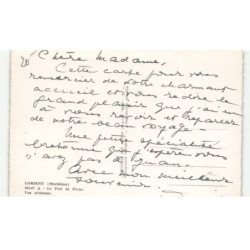 Chère Madame,
Cette carte pour vous
remercier de votre charmant
accueil et vous redire le
grand plaisir que j'ai eu
à vous revoir et reparler
de notre beau voyage -
Une petite spécialité
bretonne que j'espère vous
n'avez pas à
Avec mon meilleur
souvenir
LORIENT (Morbihan)
A - Le Port de Pêche
Vue aérienne.